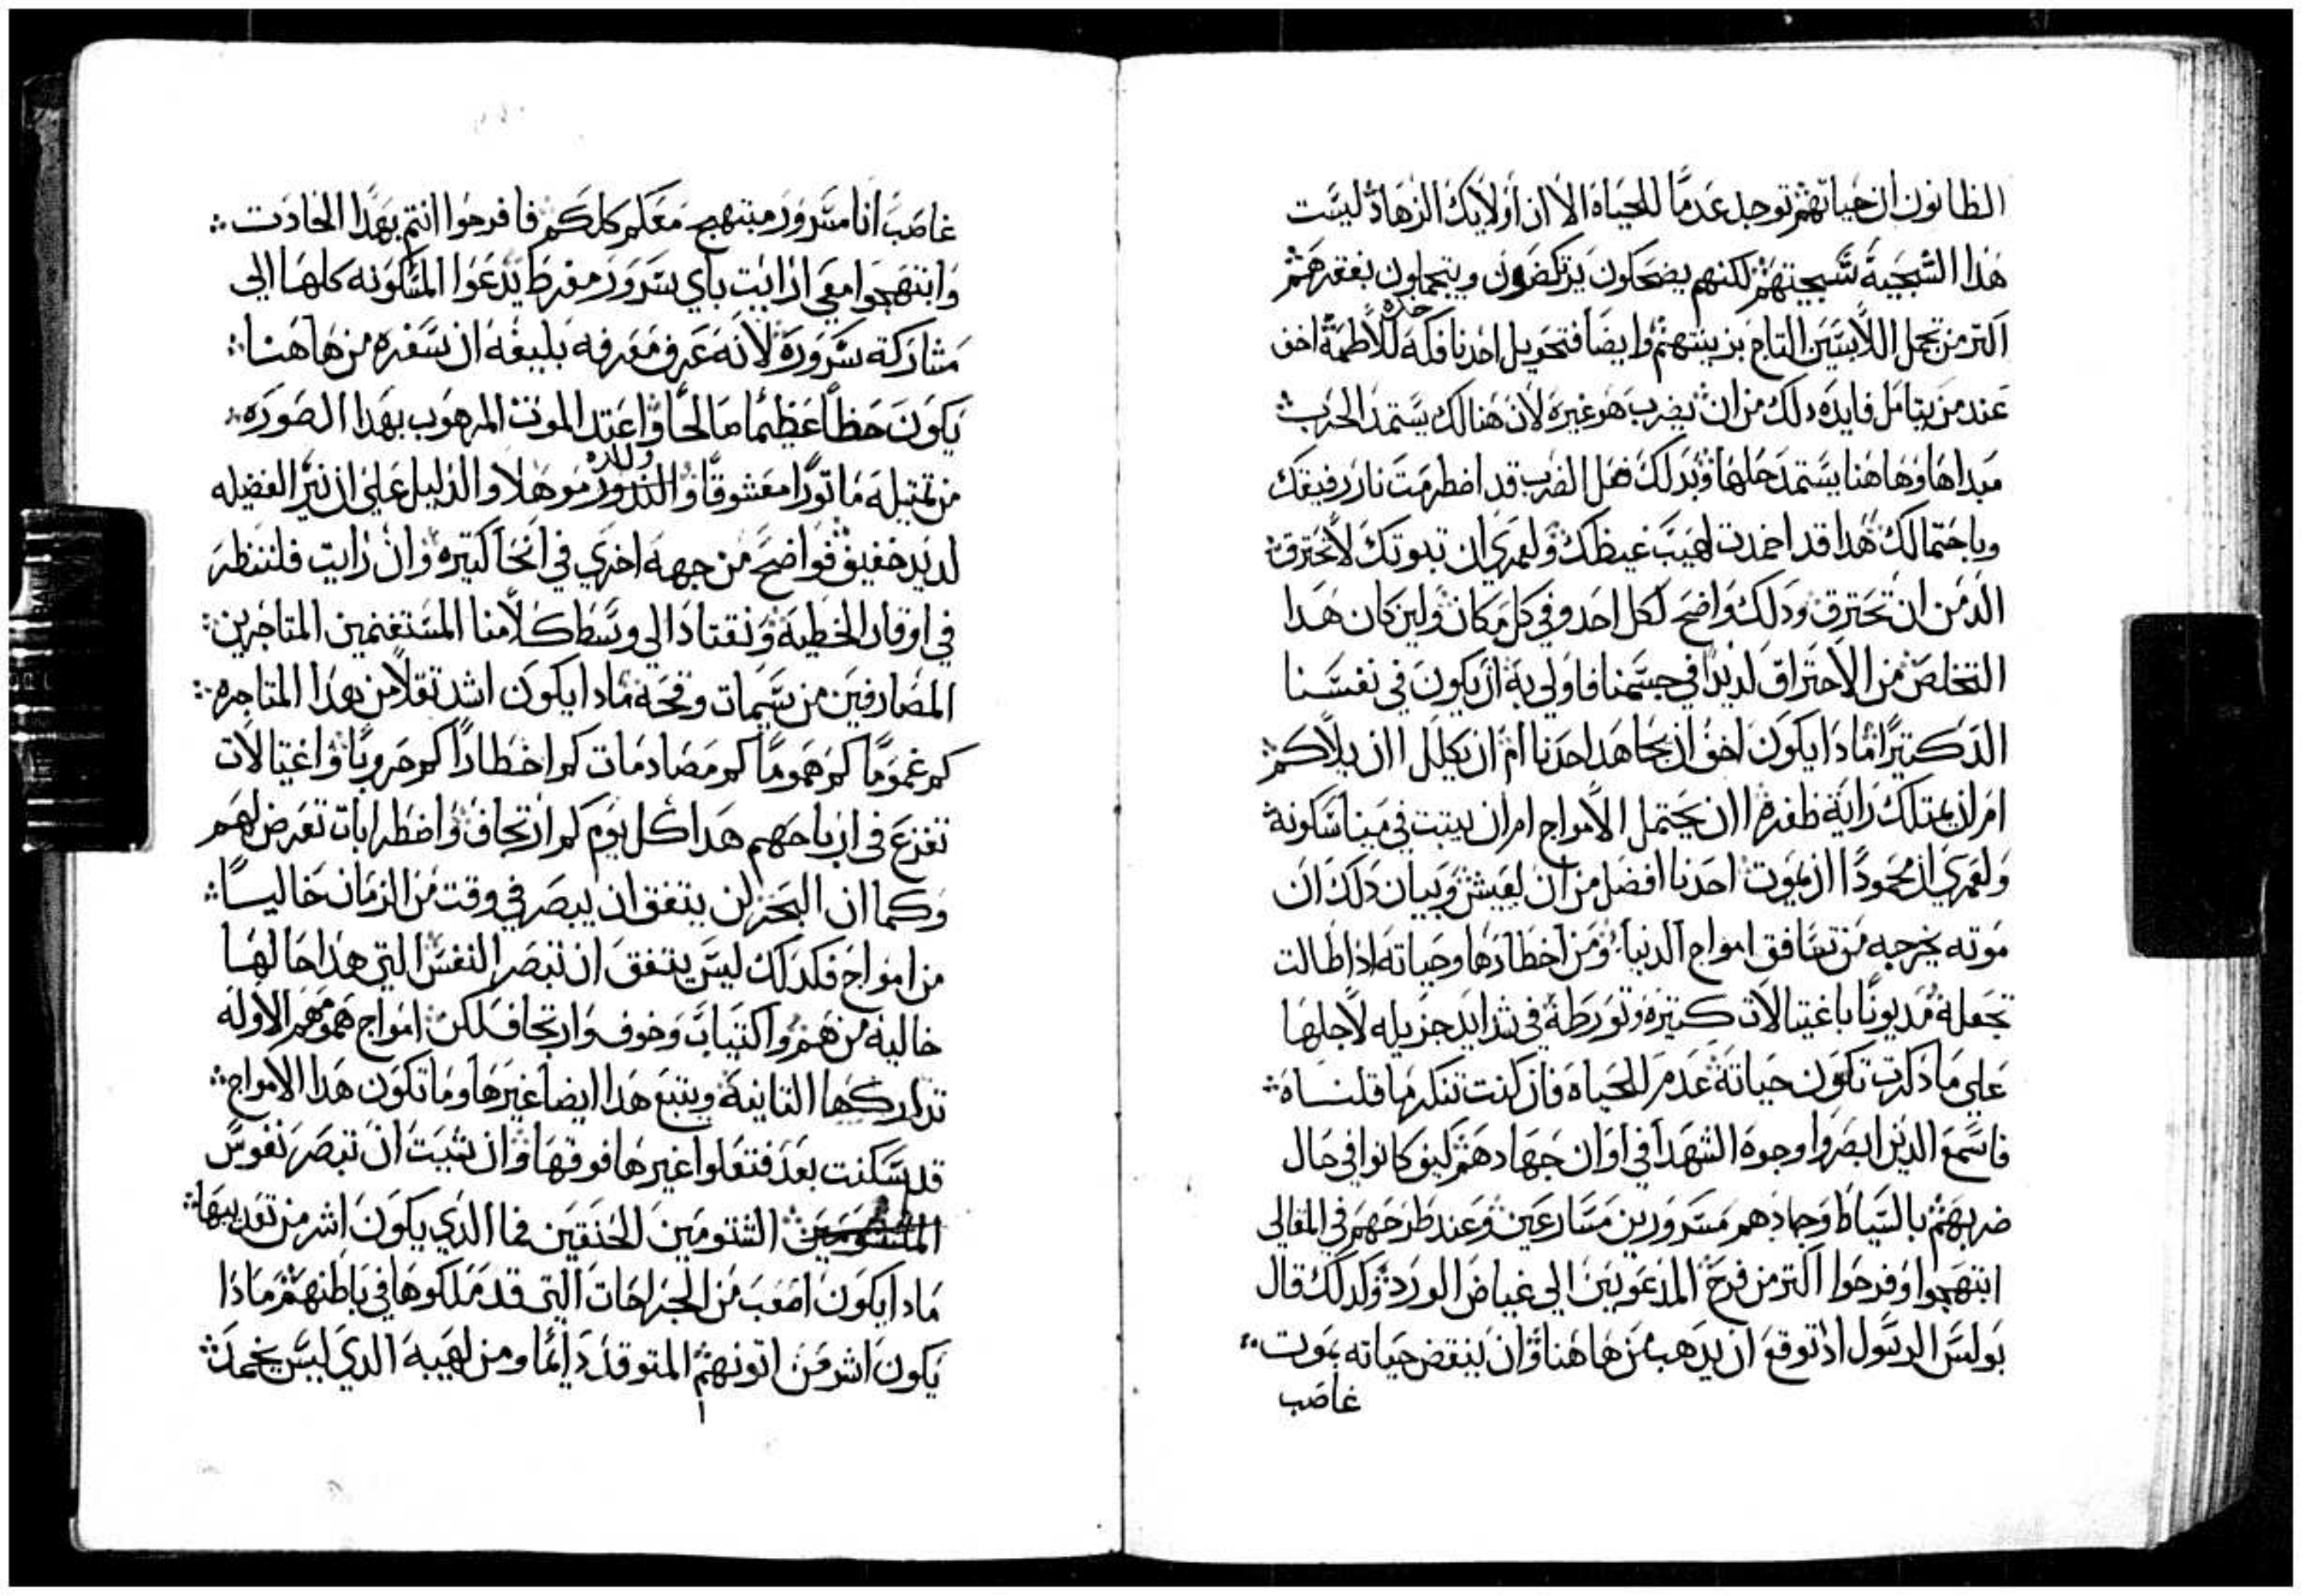 الظانون ان حياتهم توجد عدما للحياه الا ان اولايك الزهاد ليست
هذا السجية سجيتهم لكنهم يضحكون يرتكضون ويتجملون بفقرهم
اكتر من تجمل اللابسين التاج بزينتهم وايضا فتحويل احدنا فكه للاطمة اخف
عند من يتامل فايده دلك من ان يضرب هو غيره لان هنالك يستمد الحرب
مبداها وهاهنا يستمد حلها وبدلك فعل الضرب قد اضطرمت نار رفيقك
وباحتمالك هذا قد اخمدت لهيب غيظك ولعمري ان تبوتك لا تحترق
الد من ان تحترق ودلك واضح لكل احد وفي كل مكان ولين كان هدا
التخلص من الاحتراق لديدا في جسمنا فاولي به ان يكون في نفسنا
الد كتيرا مادا يكون اخف ان يجاهد احدنا ام ان يكلل اان يلاكم
ام ان يمتلك راية ظفره اان يحتمل الامواج ام ان يتبت في مينا سكونة
ولعمري ان محمودا ان يموت احدنا افضل من ان يعيش وبيان دلك ان
موته يخرجه من تسافق امواج الدنيا ومن اخطارها وحياته اذا طالت
تجعله مديونا باغتيالات كتيره وتورطه في شدايد جزيله لاجلها
علي ما دكرت تكون حياته عدم للحياه فان كنت تنكر ما قلناه
فاسمع الدين ابصروا وجوه الشهدا في اوان جهادهم كيف كانوا في حال
ضربهم بالسياط وجهادهم مسرورين مسارعين وعند طرحهم في المقالي
ابتهجوا وفرحوا اكتر من فرح المدعويين الي غياض الورد وكدلك قال
بولس الرسول اد توقع ان يدهب من هاهنا وان ينقض حياته بموت
غاصب
غاصب انا مسرور مبتهج معكم كلكم فافرحوا انتم بهذا الحادت
وابتهجوا معي ارايت باي سرور مفرط يدعوا المسكونه كلها الي
مشاركة سروره لانه عرف معرفه بليغه ان سفره من هاهنا
يكون حظا عظيما صالحا واعتد الموت المرهوب بهدا الصوره
من تمتيله ماتورا معشوقا موهلا والدليل علي ان نير الفضيله
لديد خفيف فواضح من جهه اخري في انحا كتيره وان رايت فلننظر
في اوقار الخطية ونقتاد الي وسط كلامنا المستغنمين المتاجرين
المصادفين من سيمات وقحة مادا يكون اشد تقلا من هدا المتاجره
كم غموما كم هموما كم مصادمات كم اخطارا كم حروبا واغتيالات
تفزع في ارباحهم هدا كل يوم كم ارتجاف واضطرابات تعرض لهم
وكما ان البحر لن يتفق ان يبصر في وقت من الزمان خاليسا
من امواج فكدلك ليس يتفق ان تبصر النفس التي هدا حالها
خالية من هم واكتياب وخوف وارتجاف لكن امواج همومهم الاوله
تداركها التانية ويتبع هدا ايضا غيرها وما تكون هدا الامواج
قد سكنت بعد فتعلوا غيرها فوقها وان شيت ان تبصر نفوس
الشتومين الحنقين فما الدي يكون اشر من تعديبها
مادا يكون اصعب من الجراحات التي قد ملكوها في باطنهم مادا
يكون اشر من اتونهم المتوقد دايما ومن لهيبه الدي ليس يخمد